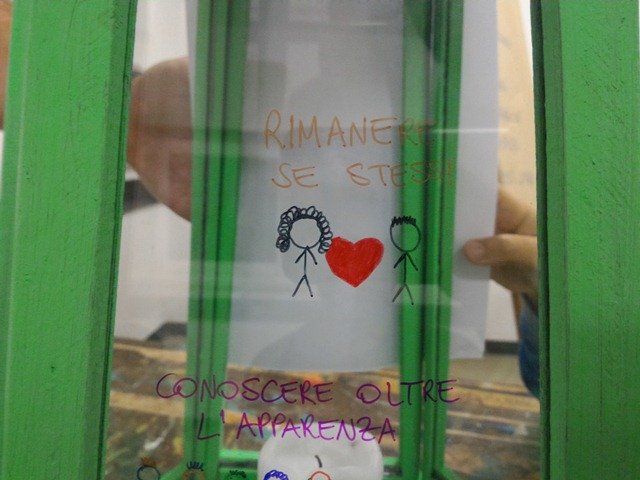 RIMANERE
SE STESSI
CONOSCERE OLTRE
L'APPARENZA